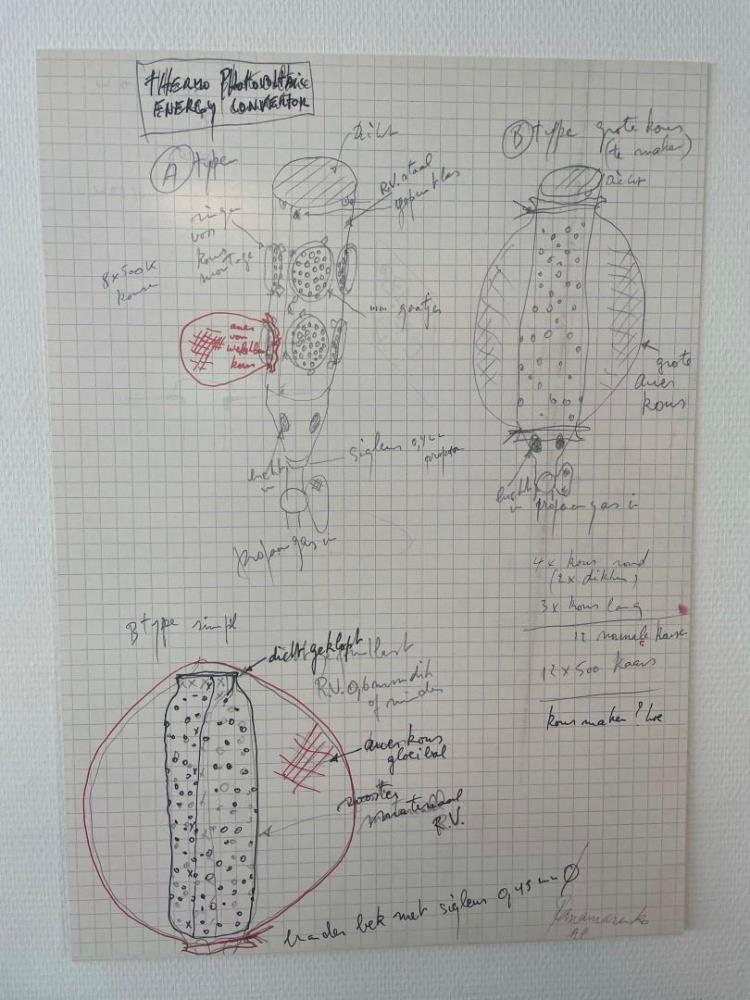 THERMO PHOTOVOLTAISE
ENERGY CONVERTOR
A type
dicht
R.V. staal
ringen
voor
kous
montage
8x500K
kousen
mm gaatjes
auer
voor
kous
lucht
in
sigleur 0,4 mm
propaan
propaan gas in
B type grote kous
(te maken)
dicht
grote
auer
kous
lucht
in
propaan gas in
4x kous rond
(2x dikker)
3x kous lang
12 normale kous
12x500 kaars
kous maken? hoe
B type simpl
dicht geklopt
R.V. 0,6 mm dik
of minder
auerkous
gloeibal
rooster
materiaal
R.V.
brander bek met sigleur 0,45 mm Ø